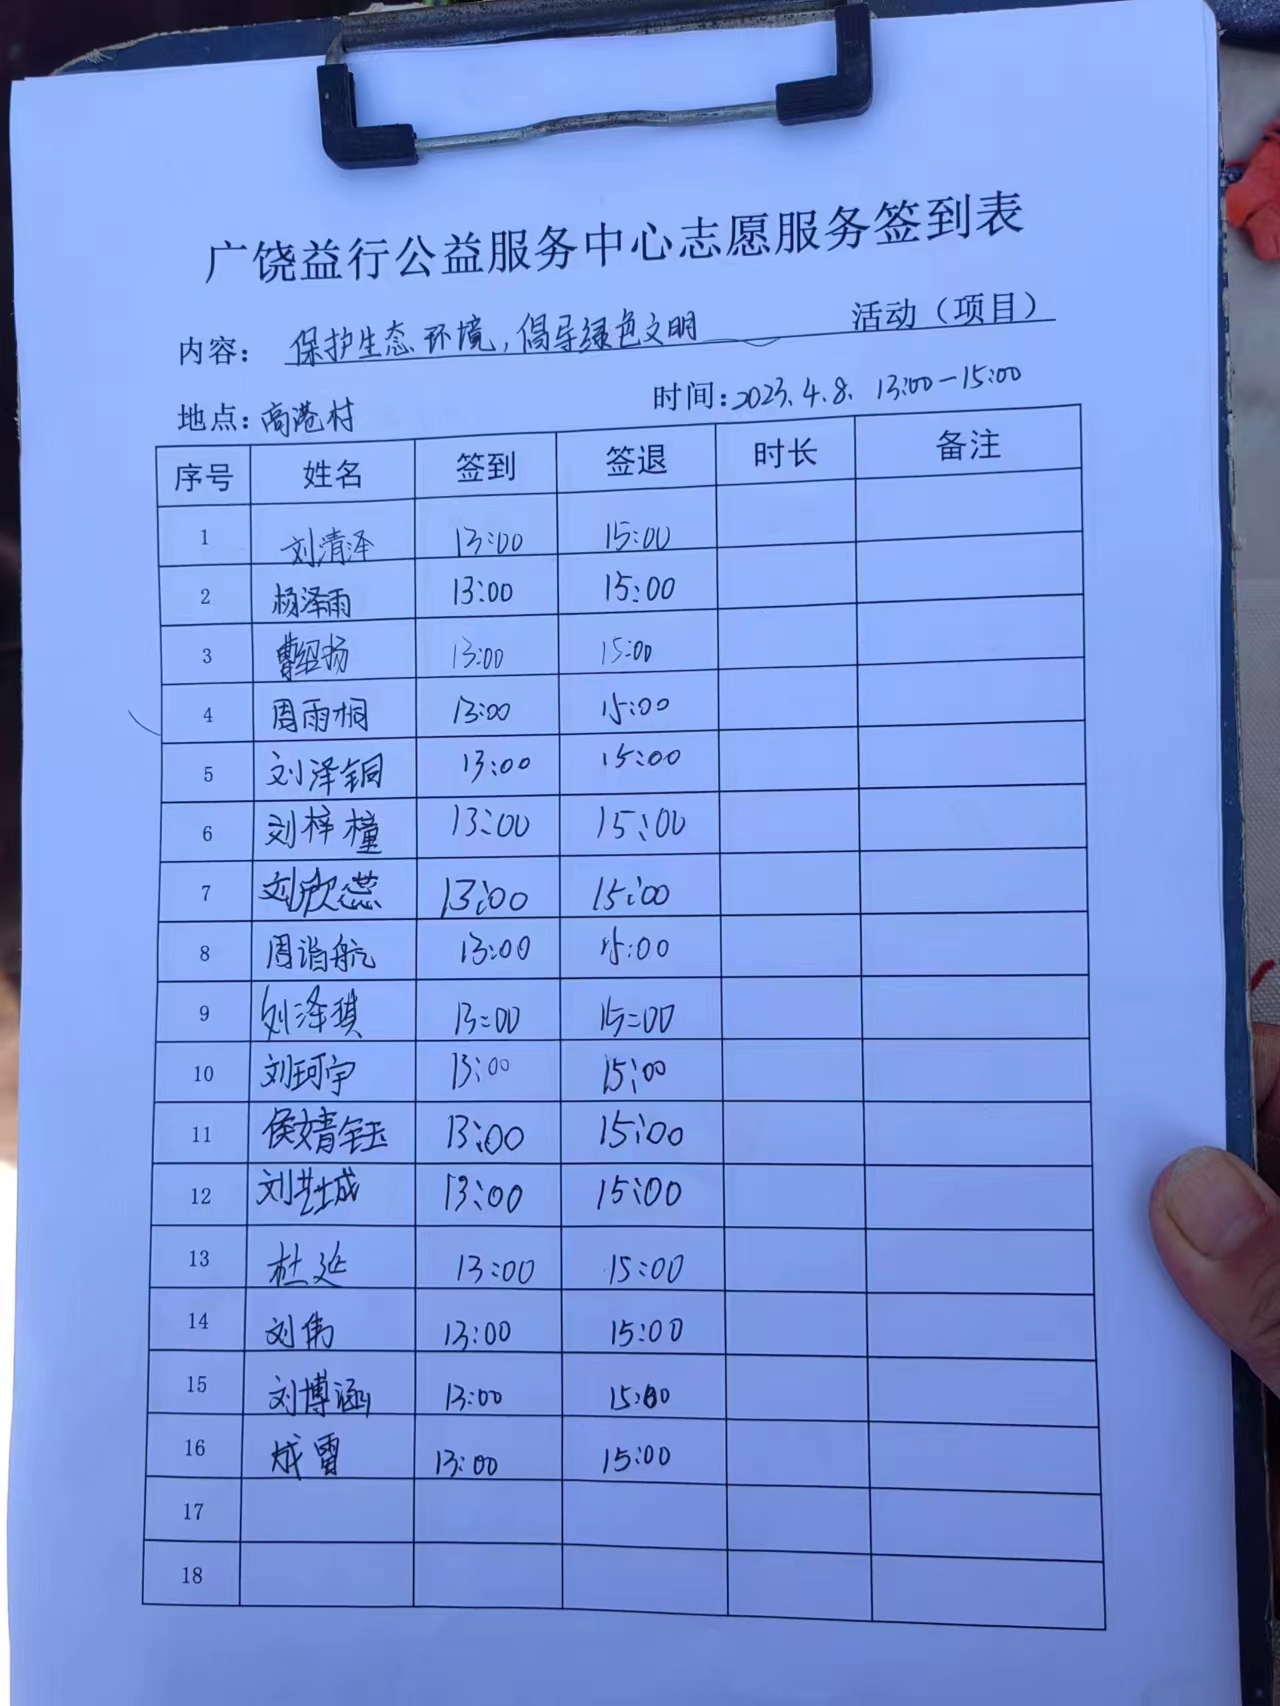 广饶益行公益服务中心志愿服务签到表
内容： 保护生态环境，倡导绿色文明 活动（项目）
地点：高港村 时间：2023.4.8. 13:00-15:00
序号 姓名 签到 签退 时长 备注
1 刘清泽 13:00 15:00
2 杨泽雨 13:00 15:00
3 曹绍扬 13:00 15:00
4 周雨桐 13:00 15:00
5 刘泽铜 13:00 15:00
6 刘梓橦 13:00 15:00
7 刘欣蕊 13:00 15:00
8 周诣航 13:00 15:00
9 刘泽琪 13:00 15:00
10 刘珂宇 13:00 15:00
11 侯婧钰 13:00 15:00
12 刘芸城 13:00 15:00
13 杜延 13:00 15:00
14 刘伟 13:00 15:00
15 刘博涵 13:00 15:00
16 13:00 15:00
17
18